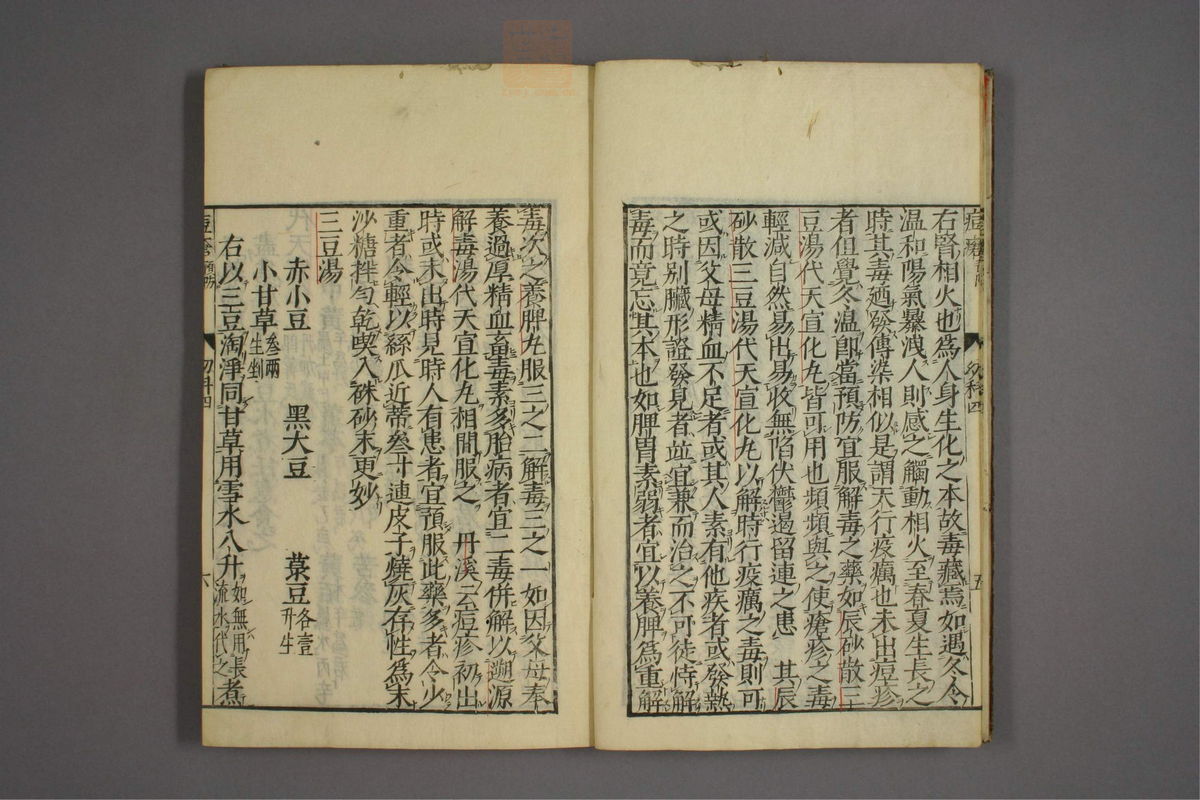 右腎相火也爲人身生化之本故毒藏焉如遇冬令
温和陽氣暴洩人則感之觸動相火至春夏生長之
時其毒廼發傳染相似是謂天行疫癘也未出痘疹
者但覺冬温卽當預防宜服解毒之藥如辰砂散三
豆湯代天宣化丸皆可用也頻頻與之使瘡疹之毒
輕減自然易出易收無陷伏鬱遏留連之患 其辰
砂散三豆湯代天宣化丸以解時行疫癘之毒則可
或因父母精血不足者或其人素有他疾者或發熱
之時別臟形證發見者並宜兼而治之不可徒恃解
毒而竟忘其本也如脾胃素弱者宜以養脾爲重解
幼科四
五
毒次之養脾丸服三之二解毒三之一如因父母奉
養過厚精血畜毒素多胎病者宜二毒併解以遡源
解毒湯代天宣化丸相間服之 丹溪云痘疹初出
時或未出時見時人有患者宜預服此藥多者令少
重者令輕以絲瓜近蒂叁寸連皮子燒灰存性爲末
沙糖拌勻乾喫入硃砂末更妙
三豆湯
赤小豆 黑大豆 菉豆各壹升生
小甘草叁兩生剉
右以三豆淘淨同甘草用雪水八升如無用長流水代之煮
幼科四
六